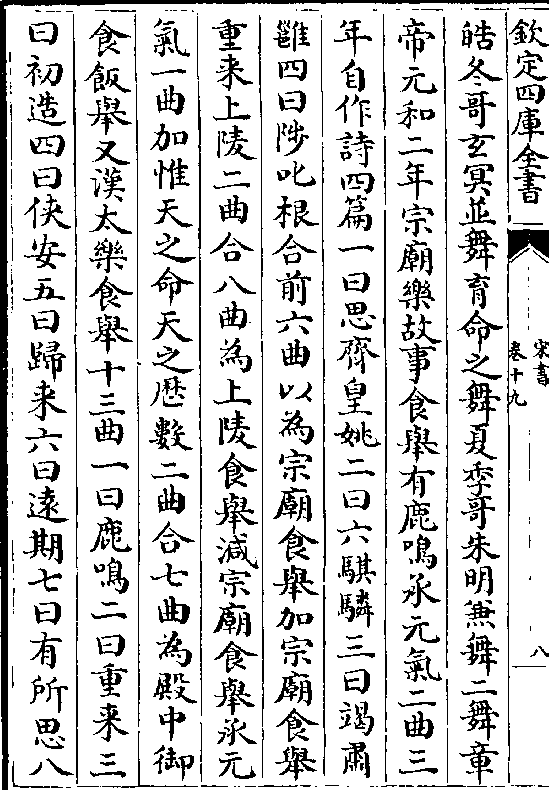 欽定四庫全書
宋書
卷十九
八
皓冬哥玄冥並舞育命之舞夏季哥朱明無舞二舞章
帝元和二年宗廟樂故事食舉有鹿鳴承元氣二曲三
年自作詩四篇一曰思齊皇姚二曰六騏驎三曰竭肅
雝四曰陟叱根合前六曲以為宗廟食舉加宗廟食舉
重来上陵二曲合八曲為上陵食舉減宗廟食舉承元
氣一曲加惟天之命天之歴數二曲合七曲為殿中御
食飯舉又漢太樂食舉十三曲一曰鹿鳴二曰重来三
曰初造四曰俠安五曰歸来六曰遠期七曰有所思八